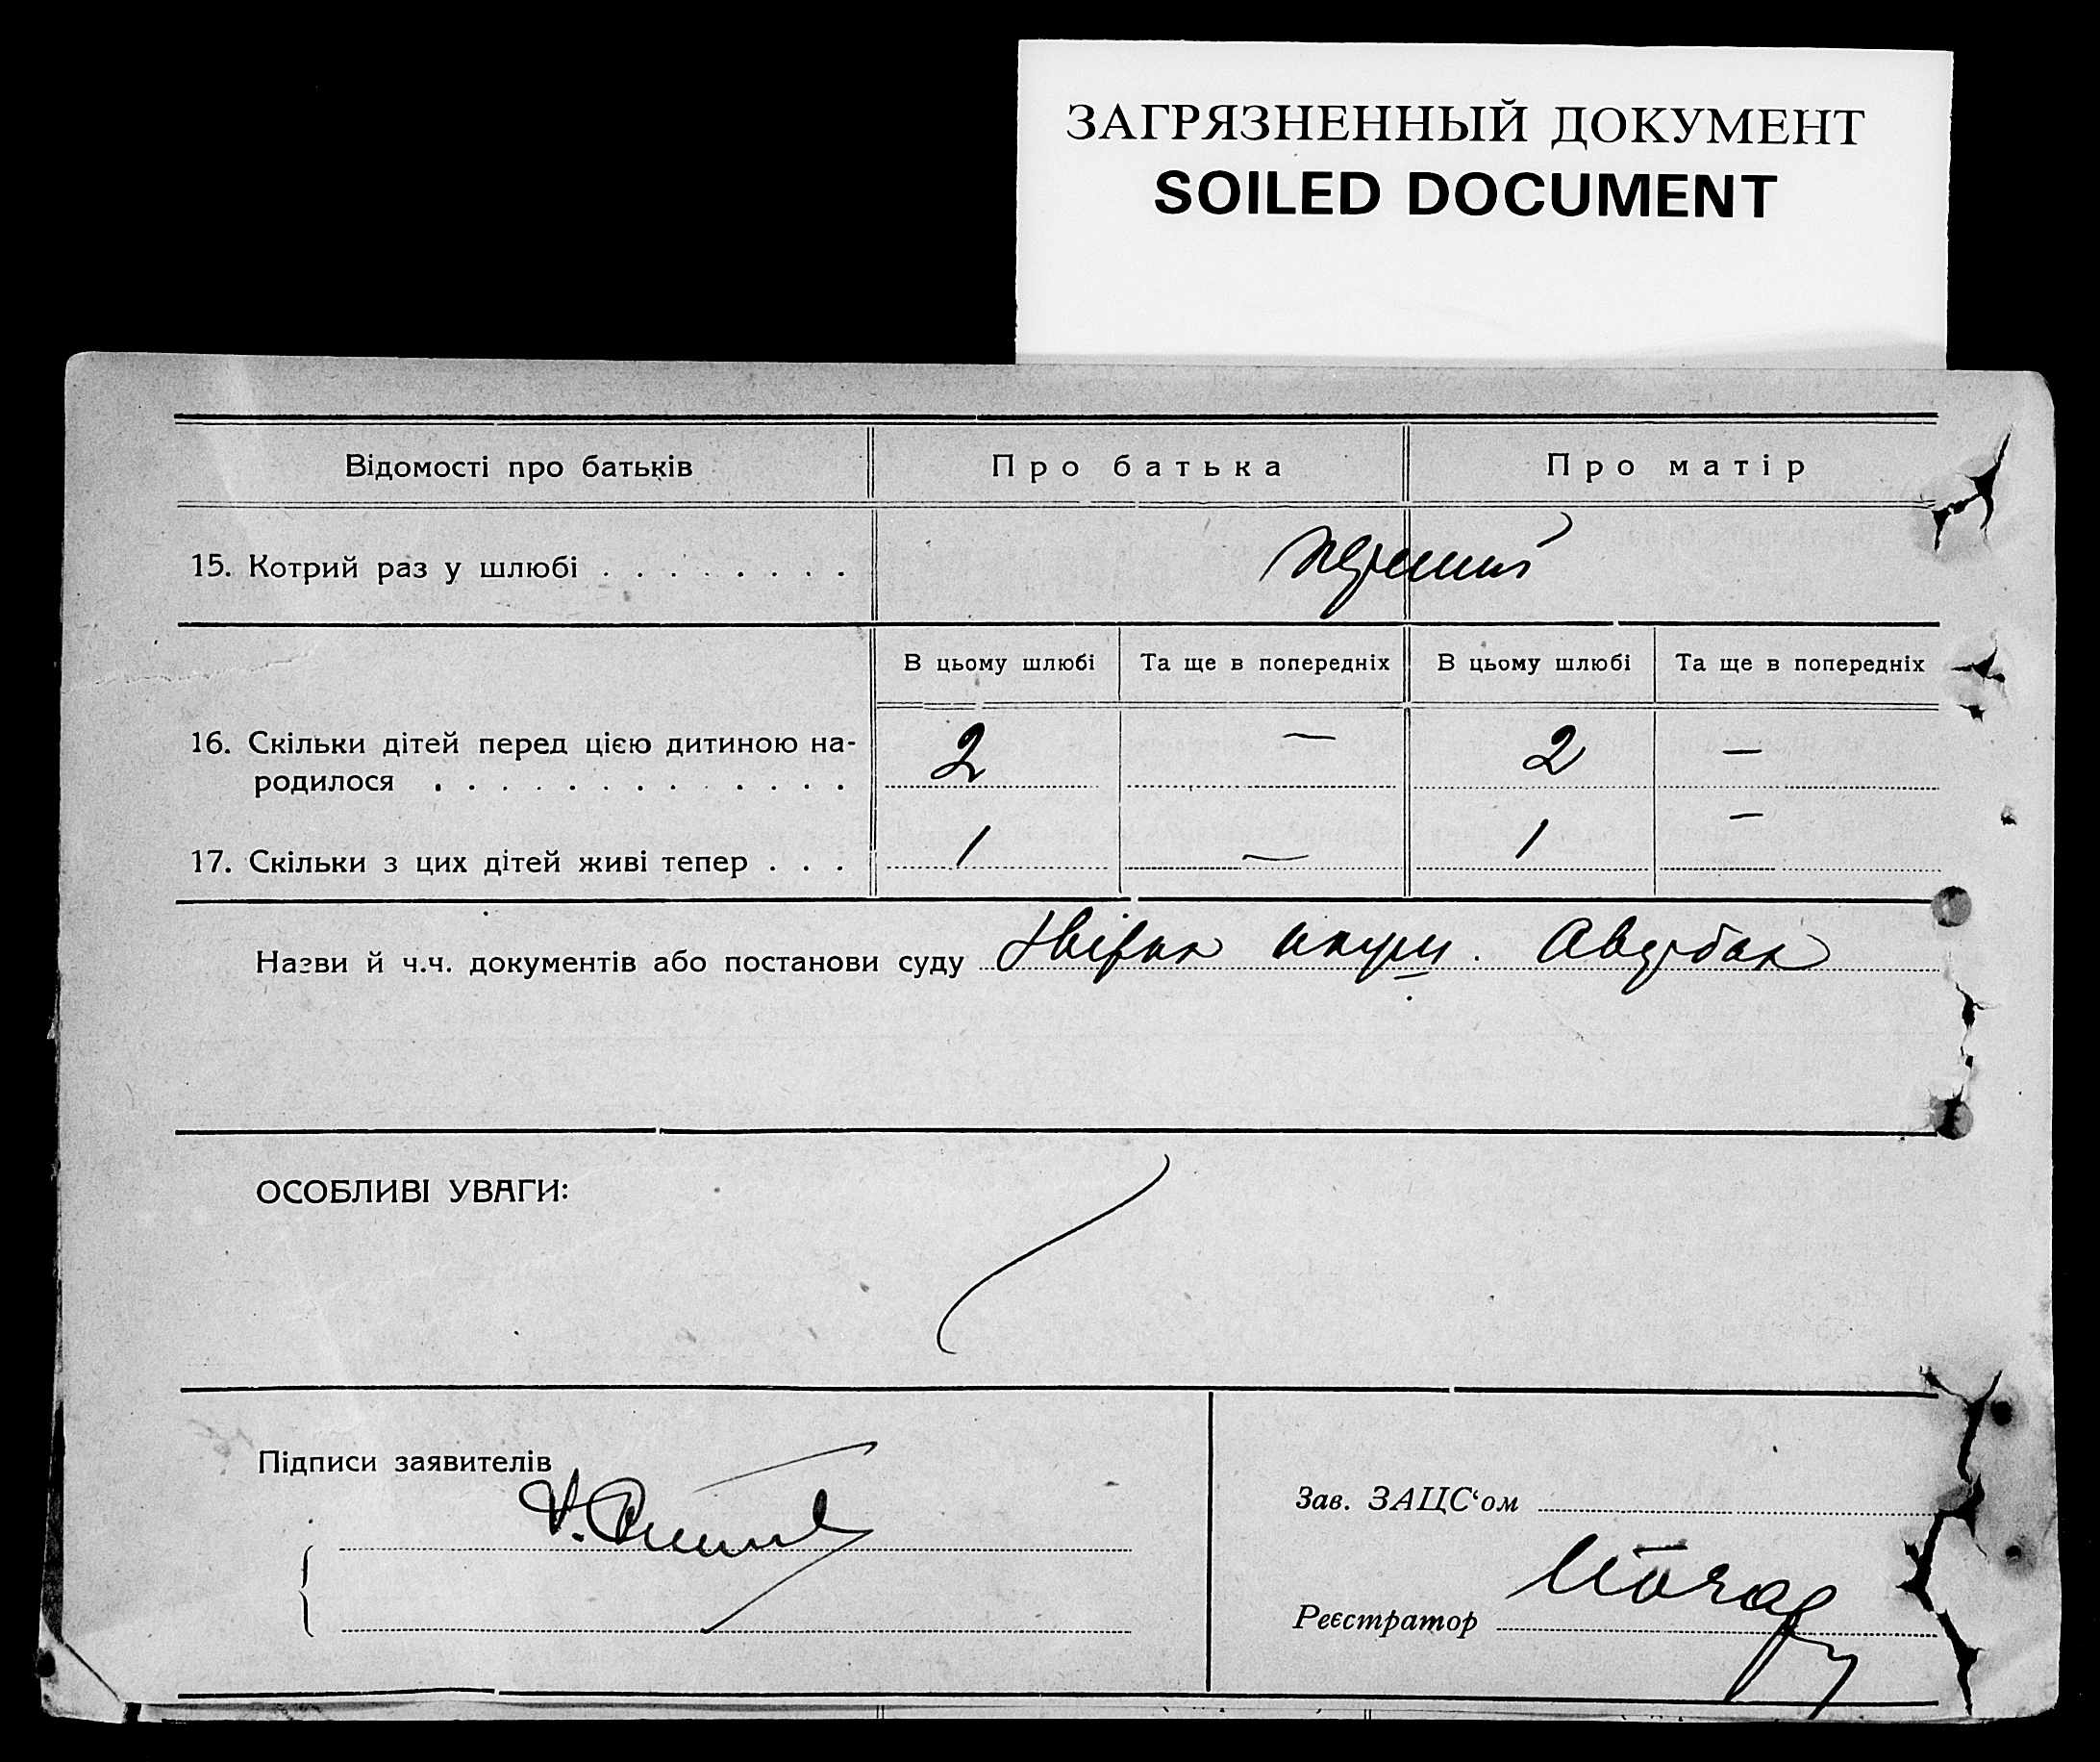 ЗАГРЯЗНЕННЫЙ ДОКУМЕНТ
SOILED DOCUMENT
Відомості про батьків Про батька Про матір
15. Котрий раз у шлюбі . . . . . . . . перший
В цьому шлюбі Та ще в попередніх В цьому шлюбі Та ще в попередніх
16. Скільки дітей перед цією дитиною на-
родилося . . . . . . . . . . . . . 2 — 2 —
17. Скільки з цих дітей живі тепер . . . 1 — 1 —
Назви й ч.ч. документів або постанови суду
ОСОБЛИВІ УВАГИ:
Підписи заявителів
Зав. ЗАЦС‘ом
Реєстратор